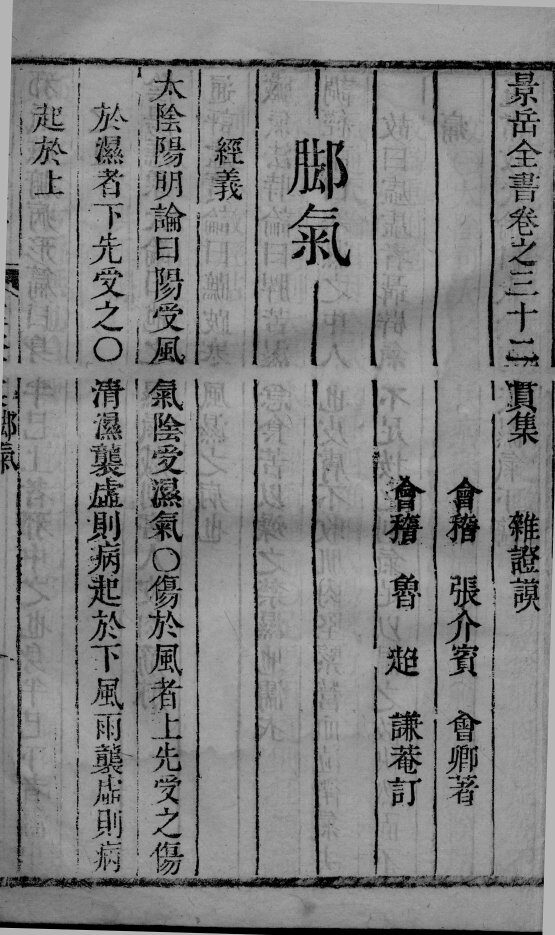 景岳全書卷之三十二 貫集 雜證謨
會稽 張介賓 會卿著
會稽 魯超 謙菴訂
脚氣
經義
太陰陽明論曰陽受風氣陰受濕氣○傷於風者上先受之傷
於濕者下先受之○清濕襲虛則病起於下風雨襲虛則病
起於上
脚氣